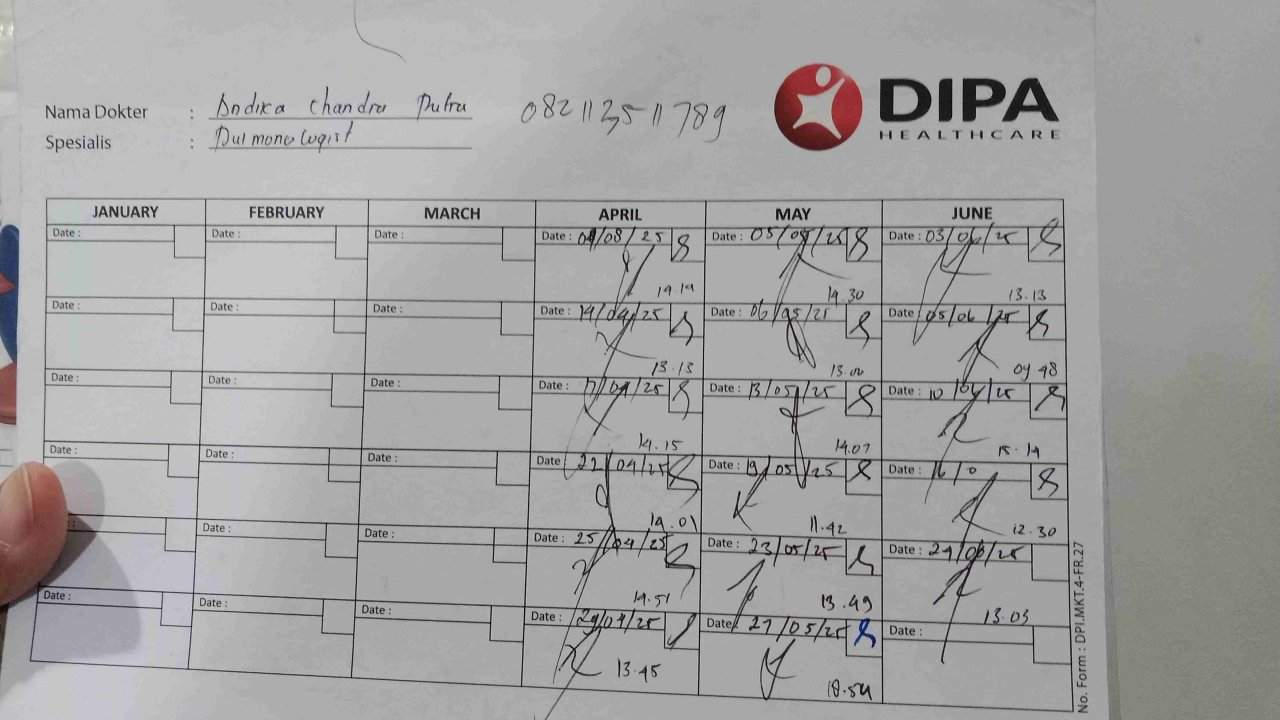 DIPA
HEALTHCARE
Nama Dokter : Andika Chandra Putra 082113511789
Spesialis : Pulmonologist
JANUARY FEBRUARY MARCH APRIL MAY JUNE
Date : Date : Date : Date : 08/25 Date : 05/05/25 Date : 03/06/25
14.14 14.30 13.13
Date : Date : Date : Date : 14/04/25 Date : 06/05/25 Date : 05/06/25
13.13 13.00 09 48
Date : Date : Date : Date : 17/04/25 Date : 13/05/25 Date : 10/06/25
14.15 14.07 15.14
Date : Date : Date : Date : 22/04/25 Date : 19/05/25 Date : 16/0
14.01 11.42 12.30
Date : Date : Date : 25/04/25 Date : 23/05/25 Date : 24/06/25
14.51 13.49 13.03
Date : Date : Date : Date : 29/04/25 Date : 27/05/25 Date :
13.45 18.54
No. Form : DPI.MKT.4-FR.27